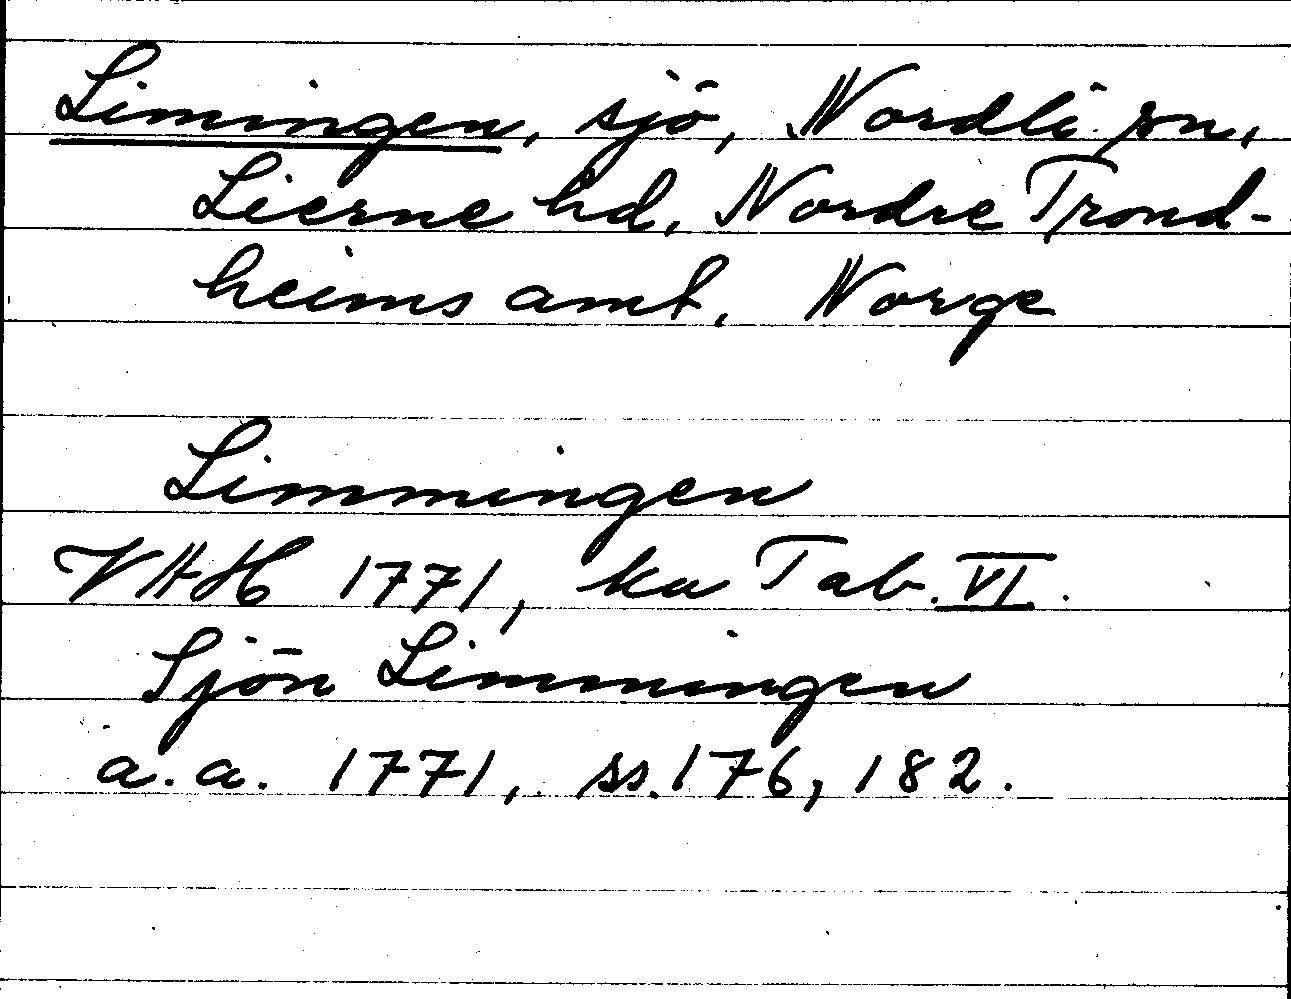 Limingen, sjö, Nordli sn,
Lierne hd, Nordre Trond-
heims amt, Norge
Limmingen
VAH 1771, ka Tab. VI.
Sjön Limmingen
a.a. 1771, ss. 176, 182.